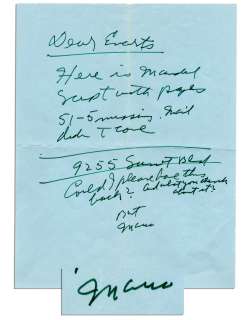 Dear Evarts
Here is
Script with pages
51-5 missing. Mail
didn't come
9255 Sunset Blvd
Could I please have this
back? And what you think
about it?
But
Mario
Mario